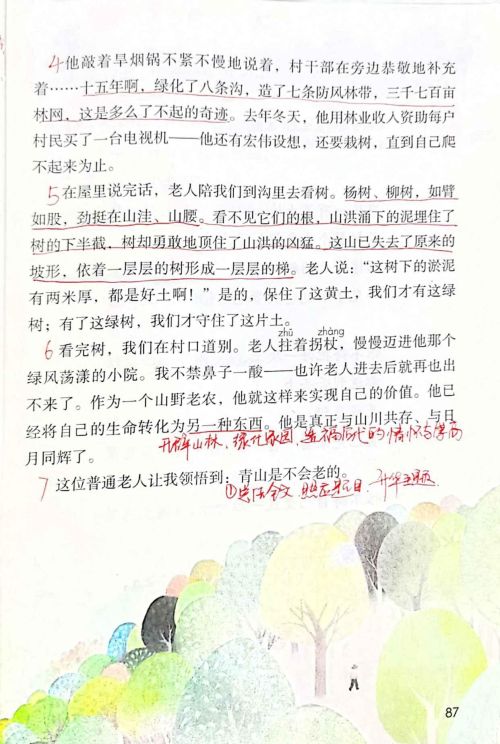 4他敲着旱烟锅不紧不慢地说着，村干部在旁边恭敬地补充
着……十五年啊，绿化了八条沟，造了七条防风林带，三千七百亩
林网，这是多么了不起的奇迹。去年冬天，他用林业收入资助每户
村民买了一台电视机——他还有宏伟设想，还要栽树，直到自己爬
不起来为止。
5在屋里说完话，老人陪我们到沟里去看树。杨树、柳树，如臂
如股，劲挺在山洼、山腰。看不见它们的根，山洪涌下的泥埋住了
树的下半截，树却勇敢地顶住了山洪的凶猛。这山已失去了原来的
坡形，依着一层层的树形成一层层的梯。老人说：“这树下的淤泥
有两米厚，都是好土啊！”是的，保住了这黄土，我们才有这绿
树；有了这绿树，我们才守住了这片土。
zhǔ zhàng
6看完树，我们在村口道别。老人拄着拐杖，慢慢迈进他那个
绿风荡漾的小院。我不禁鼻子一酸——也许老人进去后就再也出
不来了。作为一个山野老农，他就这样来实现自己的价值。他已
经将自己的生命转化为另一种东西。他是真正与山川共存、与日
月同辉了。
开辟山林、绿化家园、造福后代的情怀与
7这位普通老人让我领悟到：青山是不会老的。
①总结全文，照应题目，升华主题
87